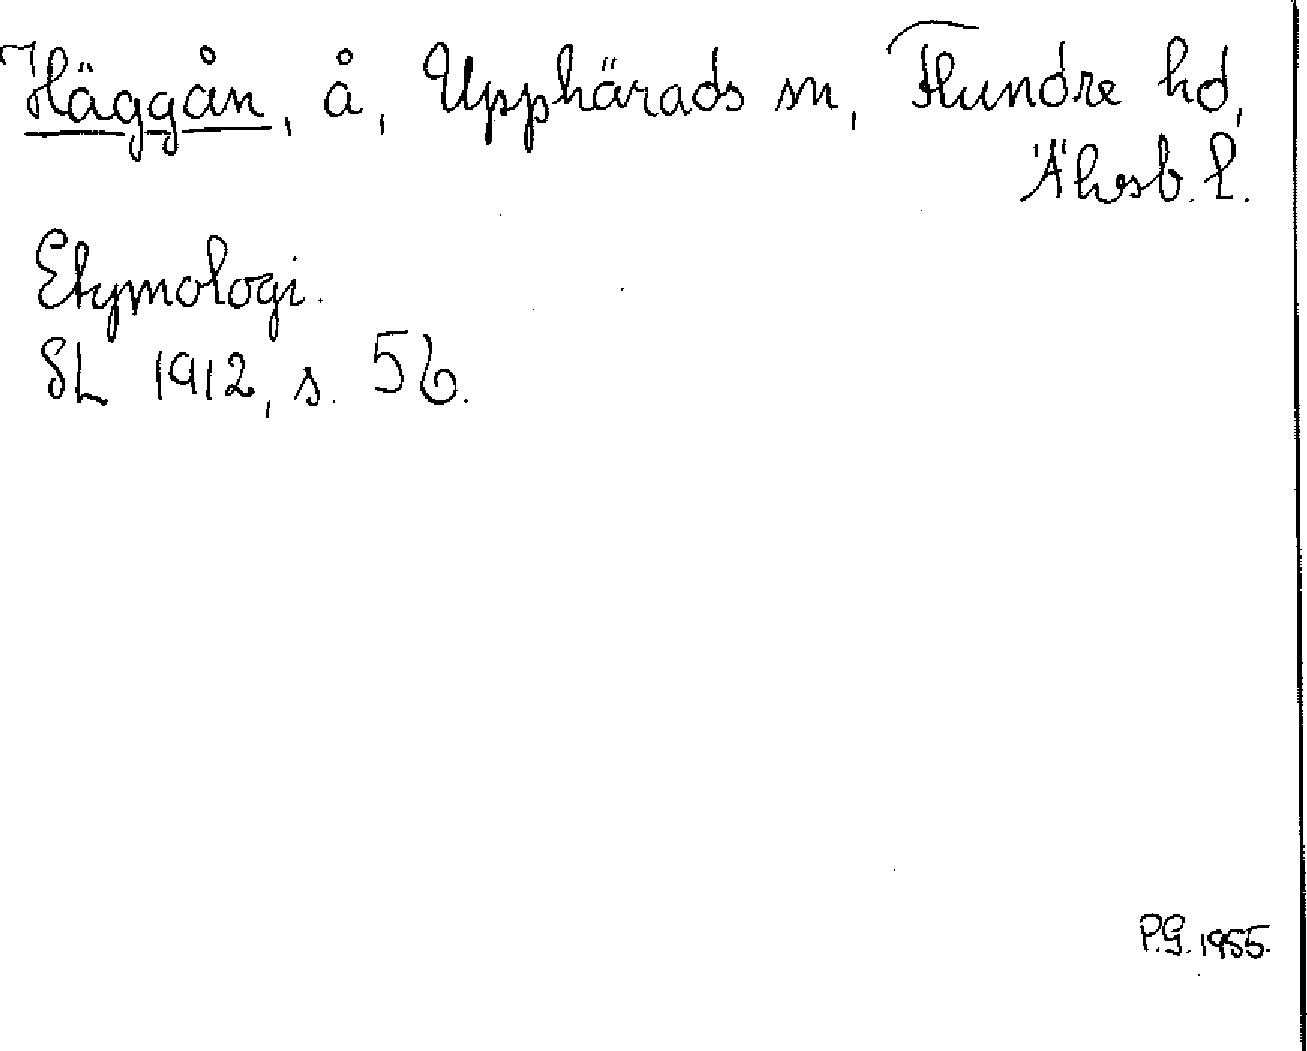 Häggån, å, Upphärads sn, Flundre hd,
Älvsb. l.
Etymologi.
SL 1912, s. 56.
P.G. 1955.